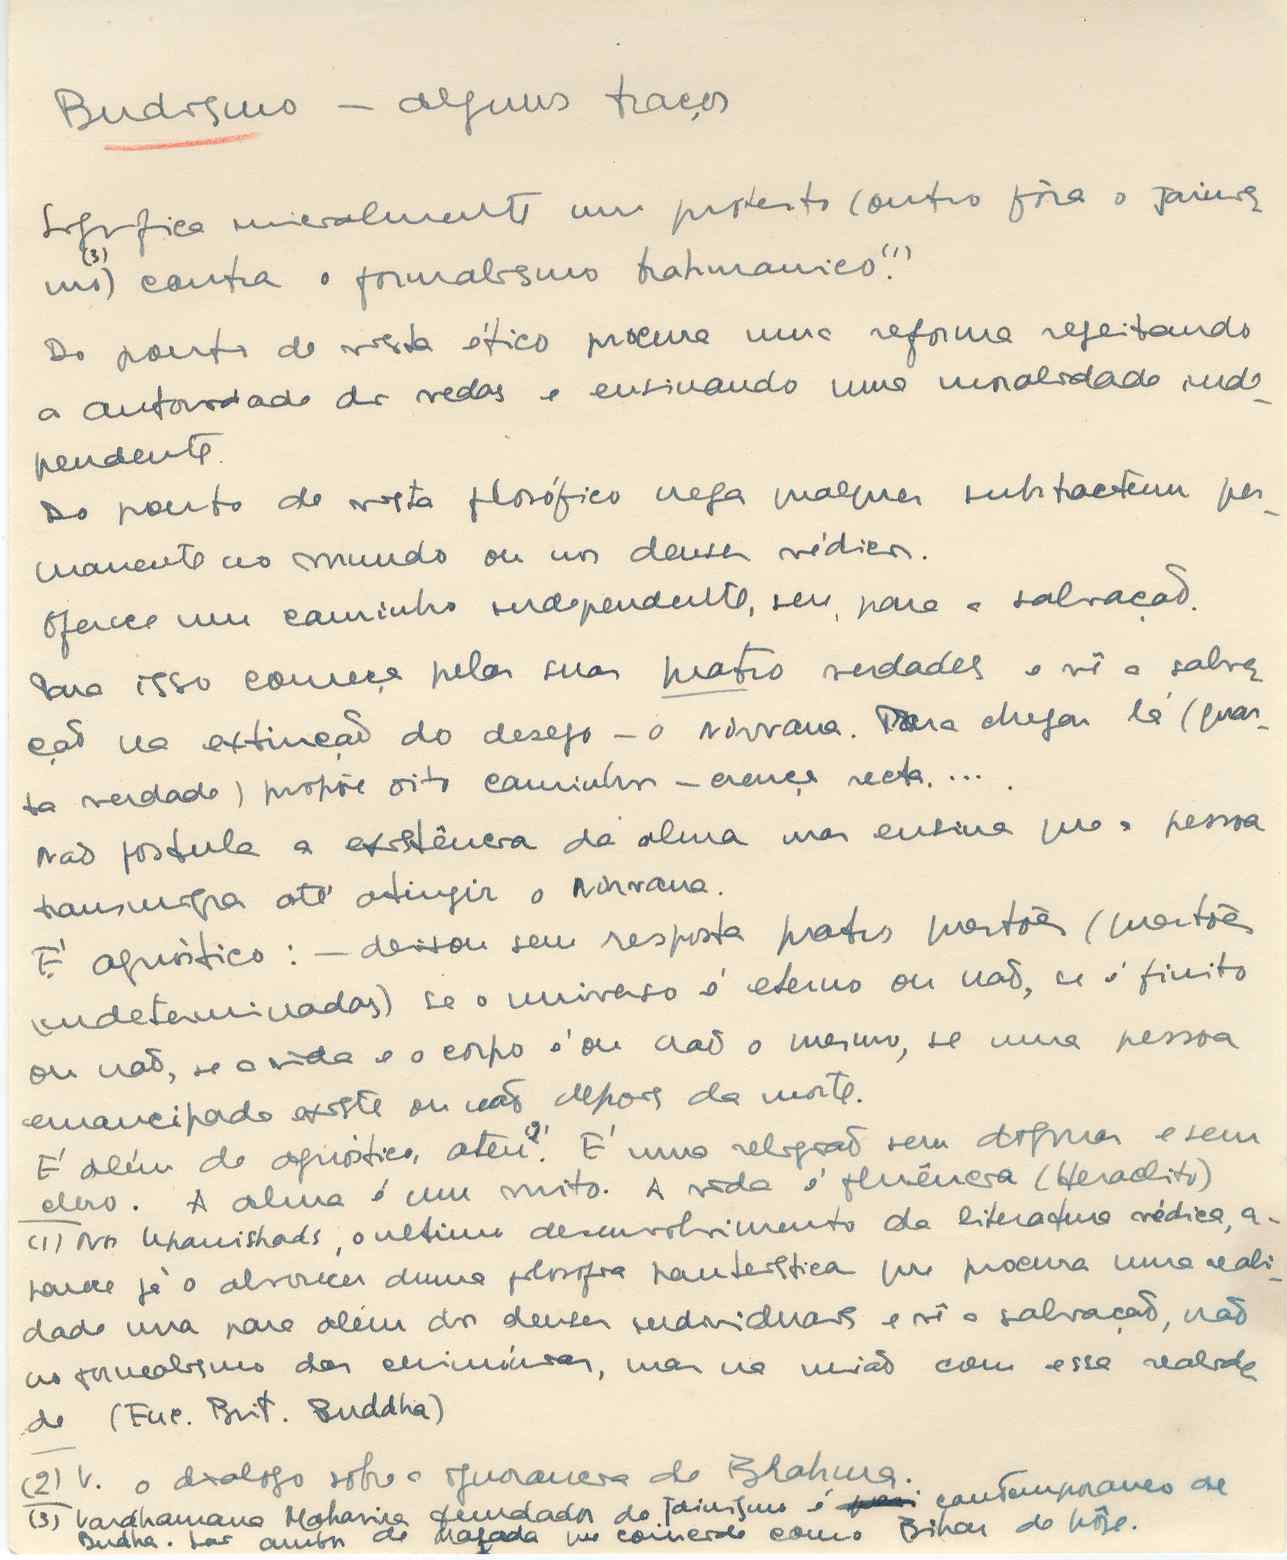 Budismo — alguns traços
Significa inicialmente um protesto (outro fôra o Jainis
mo) (3) contra o formalismo brahmanico. (1)
Do ponto de vista ético procura uma reforma rejeitando
a autoridade dos vedas e ensinando uma moralidade inde-
pendente.
Do ponto de vista filosófico nega qualquer substractum per-
manente no mundo ou nos deuses védicos.
Oferece um caminho independente, seu, para a salvação.
Para isso começa pelas suas quatro verdades e vê a salva
ção na extinção do desejo — o Nirvana. Para chegar lá (quar-
ta verdade) propõe oito caminhos — crença recta. ...
Não postula a existência da alma mas ensina que a pessoa
transmigra até atingir o Nirvana.
É agnóstico : — deixou sem resposta quatro questões (questões
indeterminadas) se o universo é eterno ou não, se é finito
ou não, se a vida e o corpo é ou não o mesmo, se uma pessoa
emancipada existe ou não depois da morte.
É além de agnóstico, ateu (2). É uma religião sem dogmas e sem
clero. A alma é um mito. A vida é fluência (Heraclito)
(1) Nos Upanishads, o ultimo desenvolvimento da literactura védica, a-
parece já o alvorecer duma filosofia panteística que procura uma reali-
dade una para além dos deuses individuais e vê a salvação, não
no formalismo das cerimónias, mas na união com essa realida
de (Enc. Brit. Buddha)
(2) V. o dialogo sobre a ignorancia de Brahma.
(3) Vardhamana Mahavira fundador do Jainismo é contemporaneo de
Budha. São ambos de Magada que corresponde como Bihar de hôje.